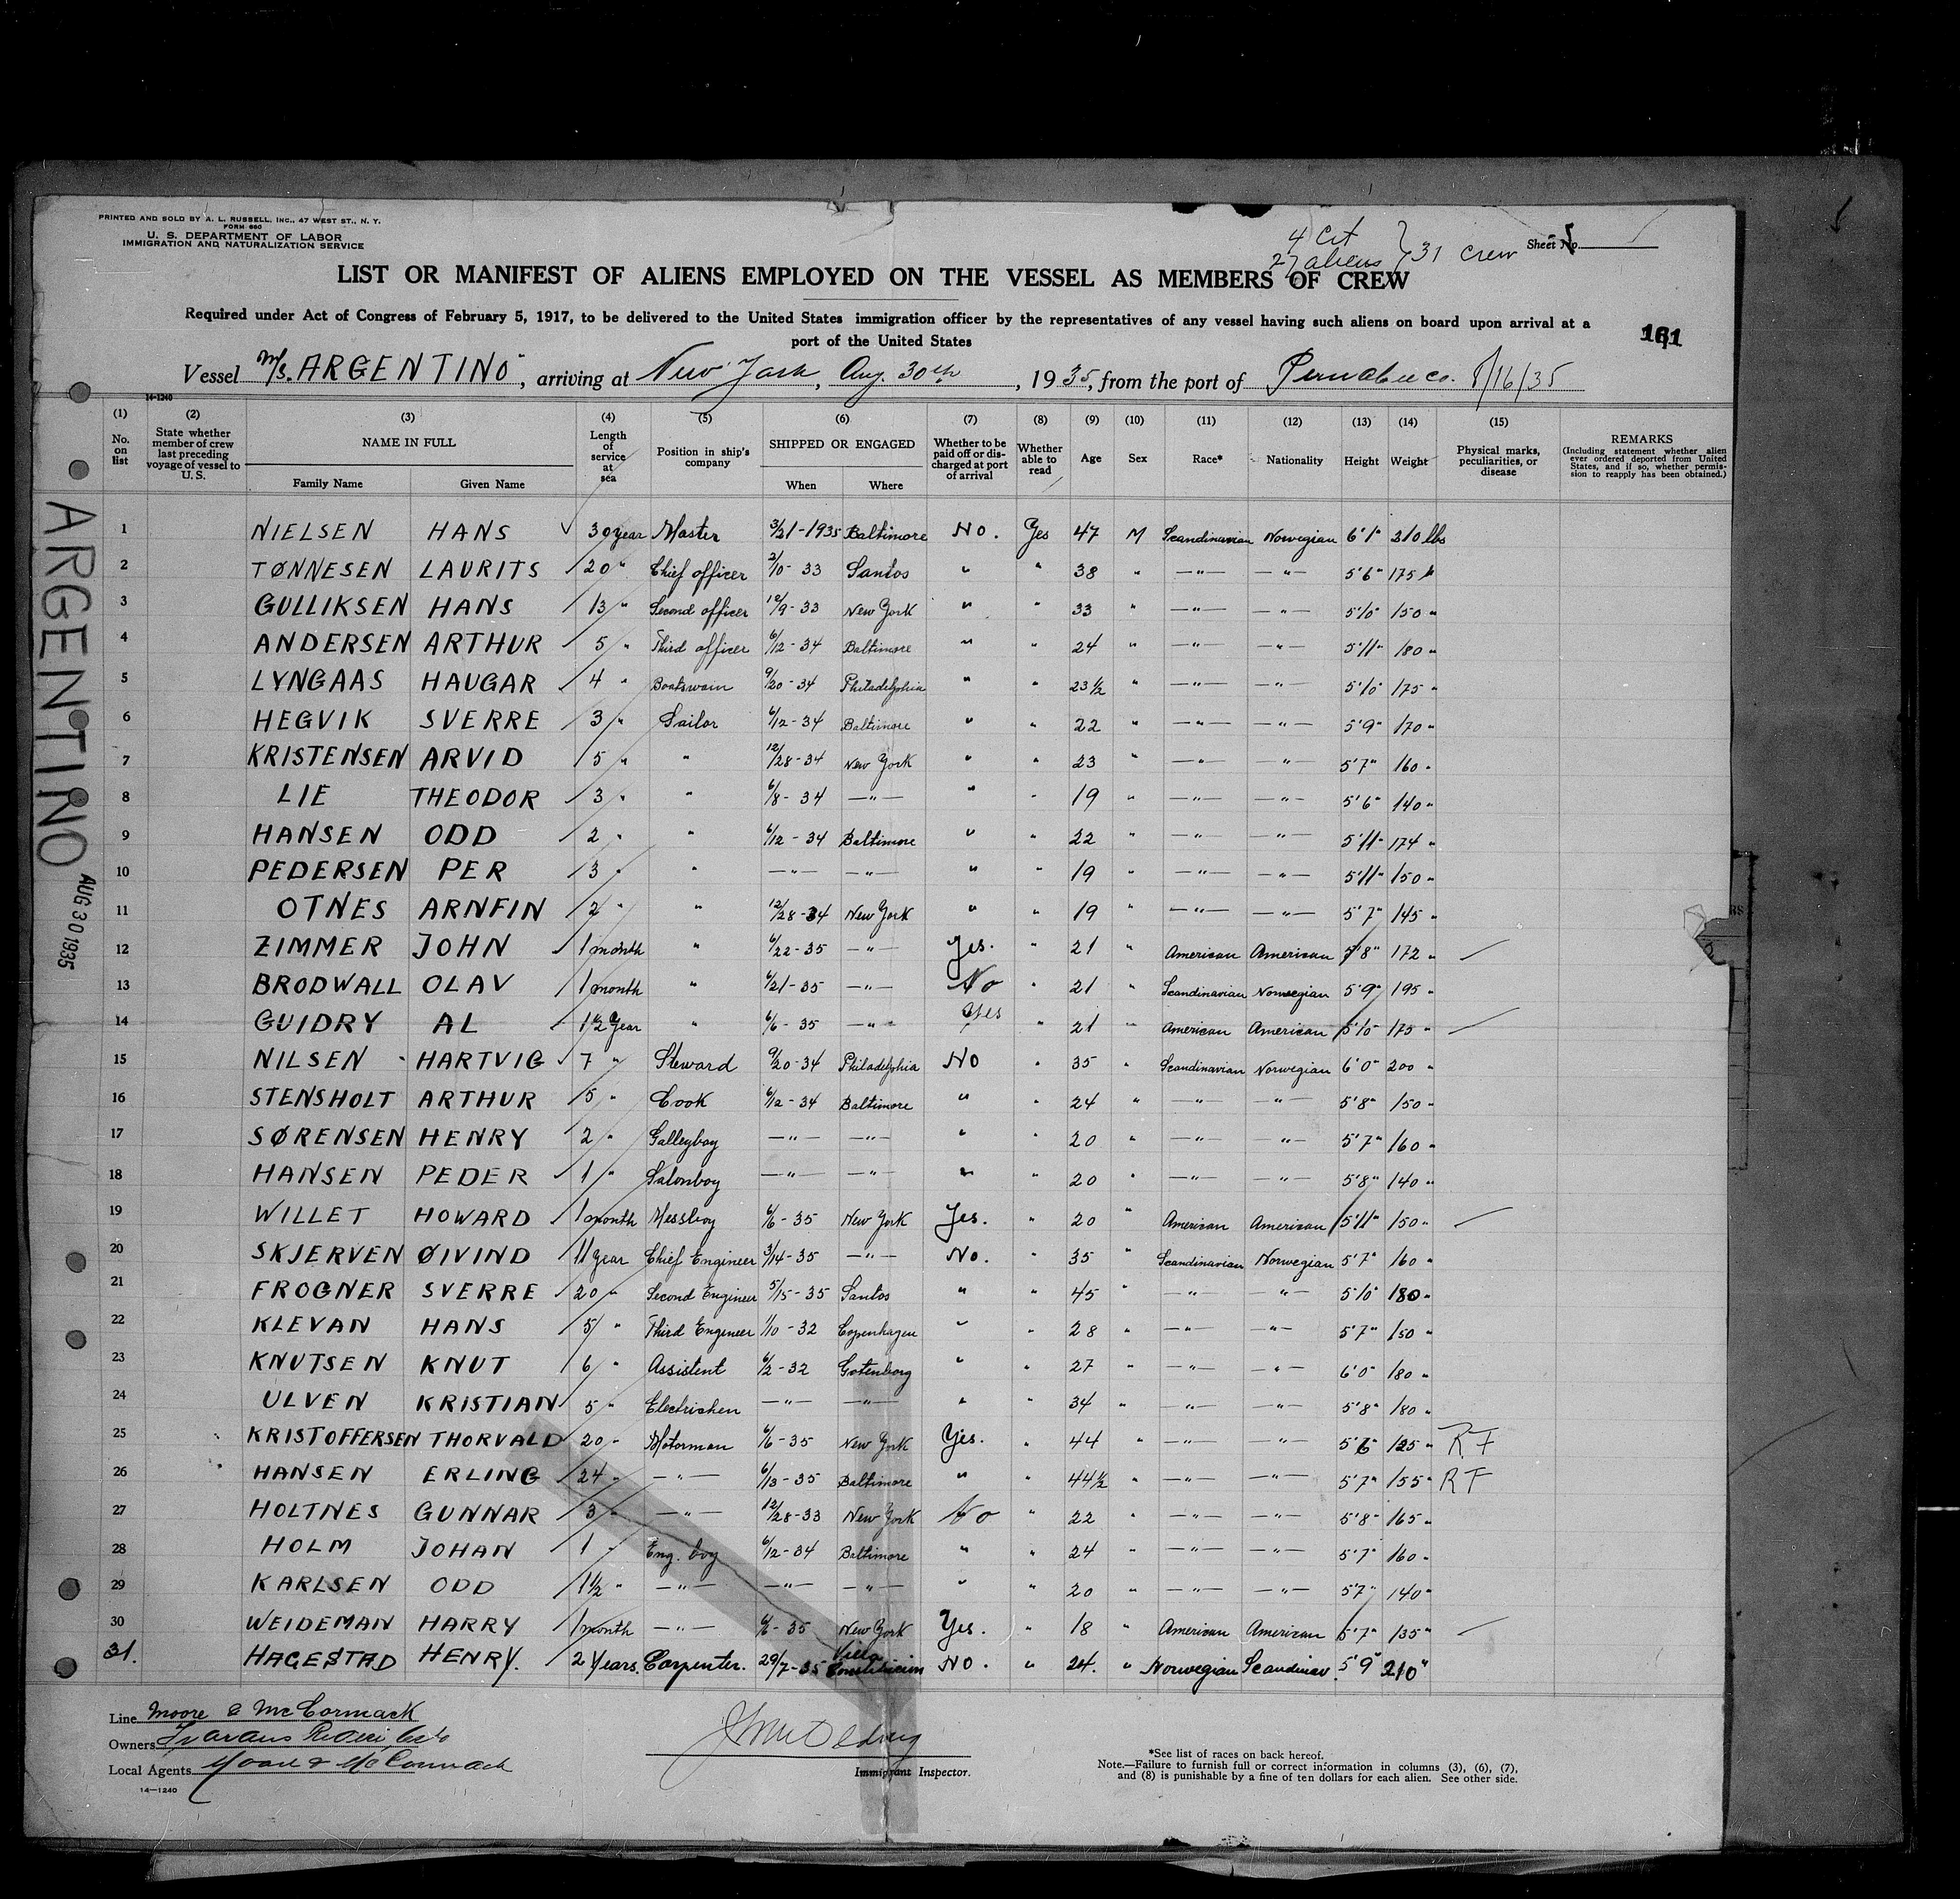 PRINTED AND SOLD BY A. L. RUSSELL, INC., 47 WEST ST., N. Y.
FORM 680
U. S. DEPARTMENT OF LABOR
IMMIGRATION AND NATURALIZATION SERVICE
4 Cit
27 aliens } 31 crew
Sheet No.
LIST OR MANIFEST OF ALIENS EMPLOYED ON THE VESSEL AS MEMBERS OF CREW
Required under Act of Congress of February 5, 1917, to be delivered to the United States immigration officer by the representatives of any vessel having such aliens on board upon arrival at a
port of the United States
161
Vessel M/S. ARGENTINO, arriving at New York, Aug. 30th, 1935, from the port of Pernambuco. 8/16/35
14-1240
(1) (2) (3) (4) (5) (6) (7) (8) (9) (10) (11) (12) (13) (14) (15)
No. on list State whether member of crew last preceding voyage of vessel to U. S. NAME IN FULL Family Name Given Name Length of service at sea Position in ship's company SHIPPED OR ENGAGED When Where Whether to be paid off or discharged at port of arrival Whether able to read Age Sex Race* Nationality Height Weight Physical marks, peculiarities, or disease REMARKS (Including statement whether alien ever ordered deported from United States, and if so, whether permission to reapply has been obtained.)
1 NIELSEN HANS 30 year Master 3/21-1935 Baltimore No. Yes 47 M Scandinavian Norwegian 6'1" 210 lbs
2 TØNNESEN LAURITS 20 " Chief officer 2/10-33 Santos " " 38 " —"— —"— 5'6" 175 "
3 GULLIKSEN HANS 13 " Second officer 12/9-33 New York " " 33 " —"— —"— 5'10" 150 "
4 ANDERSEN ARTHUR 5 " Third officer 6/12-34 Baltimore " " 24 " —"— —"— 5'11" 180 "
5 LYNGAAS HAUGAR 4 " Boatswain 9/20-34 Philadelphia " " 23½ " —"— —"— 5'10" 175 "
6 HEGVIK SVERRE 3 " Sailor 6/12-34 Baltimore " " 22 " —"— —"— 5'9" 170 "
7 KRISTENSEN ARVID 5 " " 12/28-34 New York " " 23 " —"— —"— 5'7" 160 "
8 LIE THEODOR 3 " " 6/8-34 —"— " " 19 " —"— —"— 5'6" 140 "
9 HANSEN ODD 2 " " 6/12-34 Baltimore " " 22 " —"— —"— 5'11" 174 "
10 PEDERSEN PER 3 " " —"— —"— " " 19 " —"— —"— 5'11" 150 "
11 OTNES ARNFIN 2 " " 12/28-34 New York " " 19 " —"— —"— 5'7" 145 "
12 ZIMMER JOHN 1 month " 6/22-35 —"— Yes. " 21 " American American 5'8" 172 "
13 BRODWALL OLAV 1 month " 6/21-35 —"— No " 21 " Scandinavian Norwegian 5'9" 195 "
14 GUIDRY AL 1½ Year " 6/6-35 —"— Yes " 21 " American American 5'10" 175 "
15 NILSEN HARTVIG 7 " Steward 9/20-34 Philadelphia NO " 35 " Scandinavian Norwegian 6'0" 200 "
16 STENSHOLT ARTHUR 5 " Cook 6/12-34 Baltimore " " 24 " —"— —"— 5'8" 150 "
17 SØRENSEN HENRY 2 " Galleyboy —"— —"— " " 20 " —"— —"— 5'7" 160 "
18 HANSEN PEDER 1 " Salonboy —"— —"— " " 20 " —"— —"— 5'8" 140 "
19 WILLET HOWARD 1 month Messboy 6/6-35 New York Yes. " 20 " American American 5'11" 150 "
20 SKJERVEN ØIVIND 11 year Chief Engineer 3/14-35 —"— No. " 35 " Scandinavian Norwegian 5'7" 160 "
21 FROGNER SVERRE 20 " Second Engineer 5/15-35 Santos " " 45 " —"— —"— 5'10" 180 "
22 KLEVAN HANS 5 " Third Engineer 1/10-32 Copenhagen " " 28 " —"— —"— 5'7" 150 "
23 KNUTSEN KNUT 6 " Assistent 6/2-32 Gotenborg " " 27 " —"— —"— 6'0" 180 "
24 ULVEN KRISTIAN 5 " Electrishen —"— —"— " 34 " —"— —"— 5'8" 180 "
25 KRISTOFFERSEN THORVALD 20 " Motorman 6/6-35 New York Yes. " 44 " —"— —"— 5'6" 125 " RF
26 HANSEN ERLING 24 " —"— 6/13-35 Baltimore " " 44½ " —"— —"— 5'7" 155 " RF
27 HOLTNES GUNNAR 3 " —"— 12/28-33 New York No " 22 " —"— —"— 5'8" 165 "
28 HOLM JOHAN 1 " Eng. boy 6/12-34 Baltimore " " 24 " —"— —"— 5'7" 160 "
29 KARLSEN ODD 1½ " —"— —"— —"— " " 20 " —"— —"— 5'7" 140 "
30 WEIDEMAN HARRY 1 month —"— 6/6-35 New York Yes. " 18 " American American 5'7" 135 "
31. HAGESTAD HENRY. 2 Years. Carpenter. 29/7-35 Villa Constitucion NO. " 24. " Norwegian Scandinav. 5'9" 210 "
ARGENTINO
AUG 30 1935
Line Moore & McCormack
Owners
Local Agents Moore & McCormack
14—1240
Immigrant Inspector.
*See list of races on back hereof.
Note.—Failure to furnish full or correct information in columns (3), (6), (7),
and (8) is punishable by a fine of ten dollars for each alien. See other side.